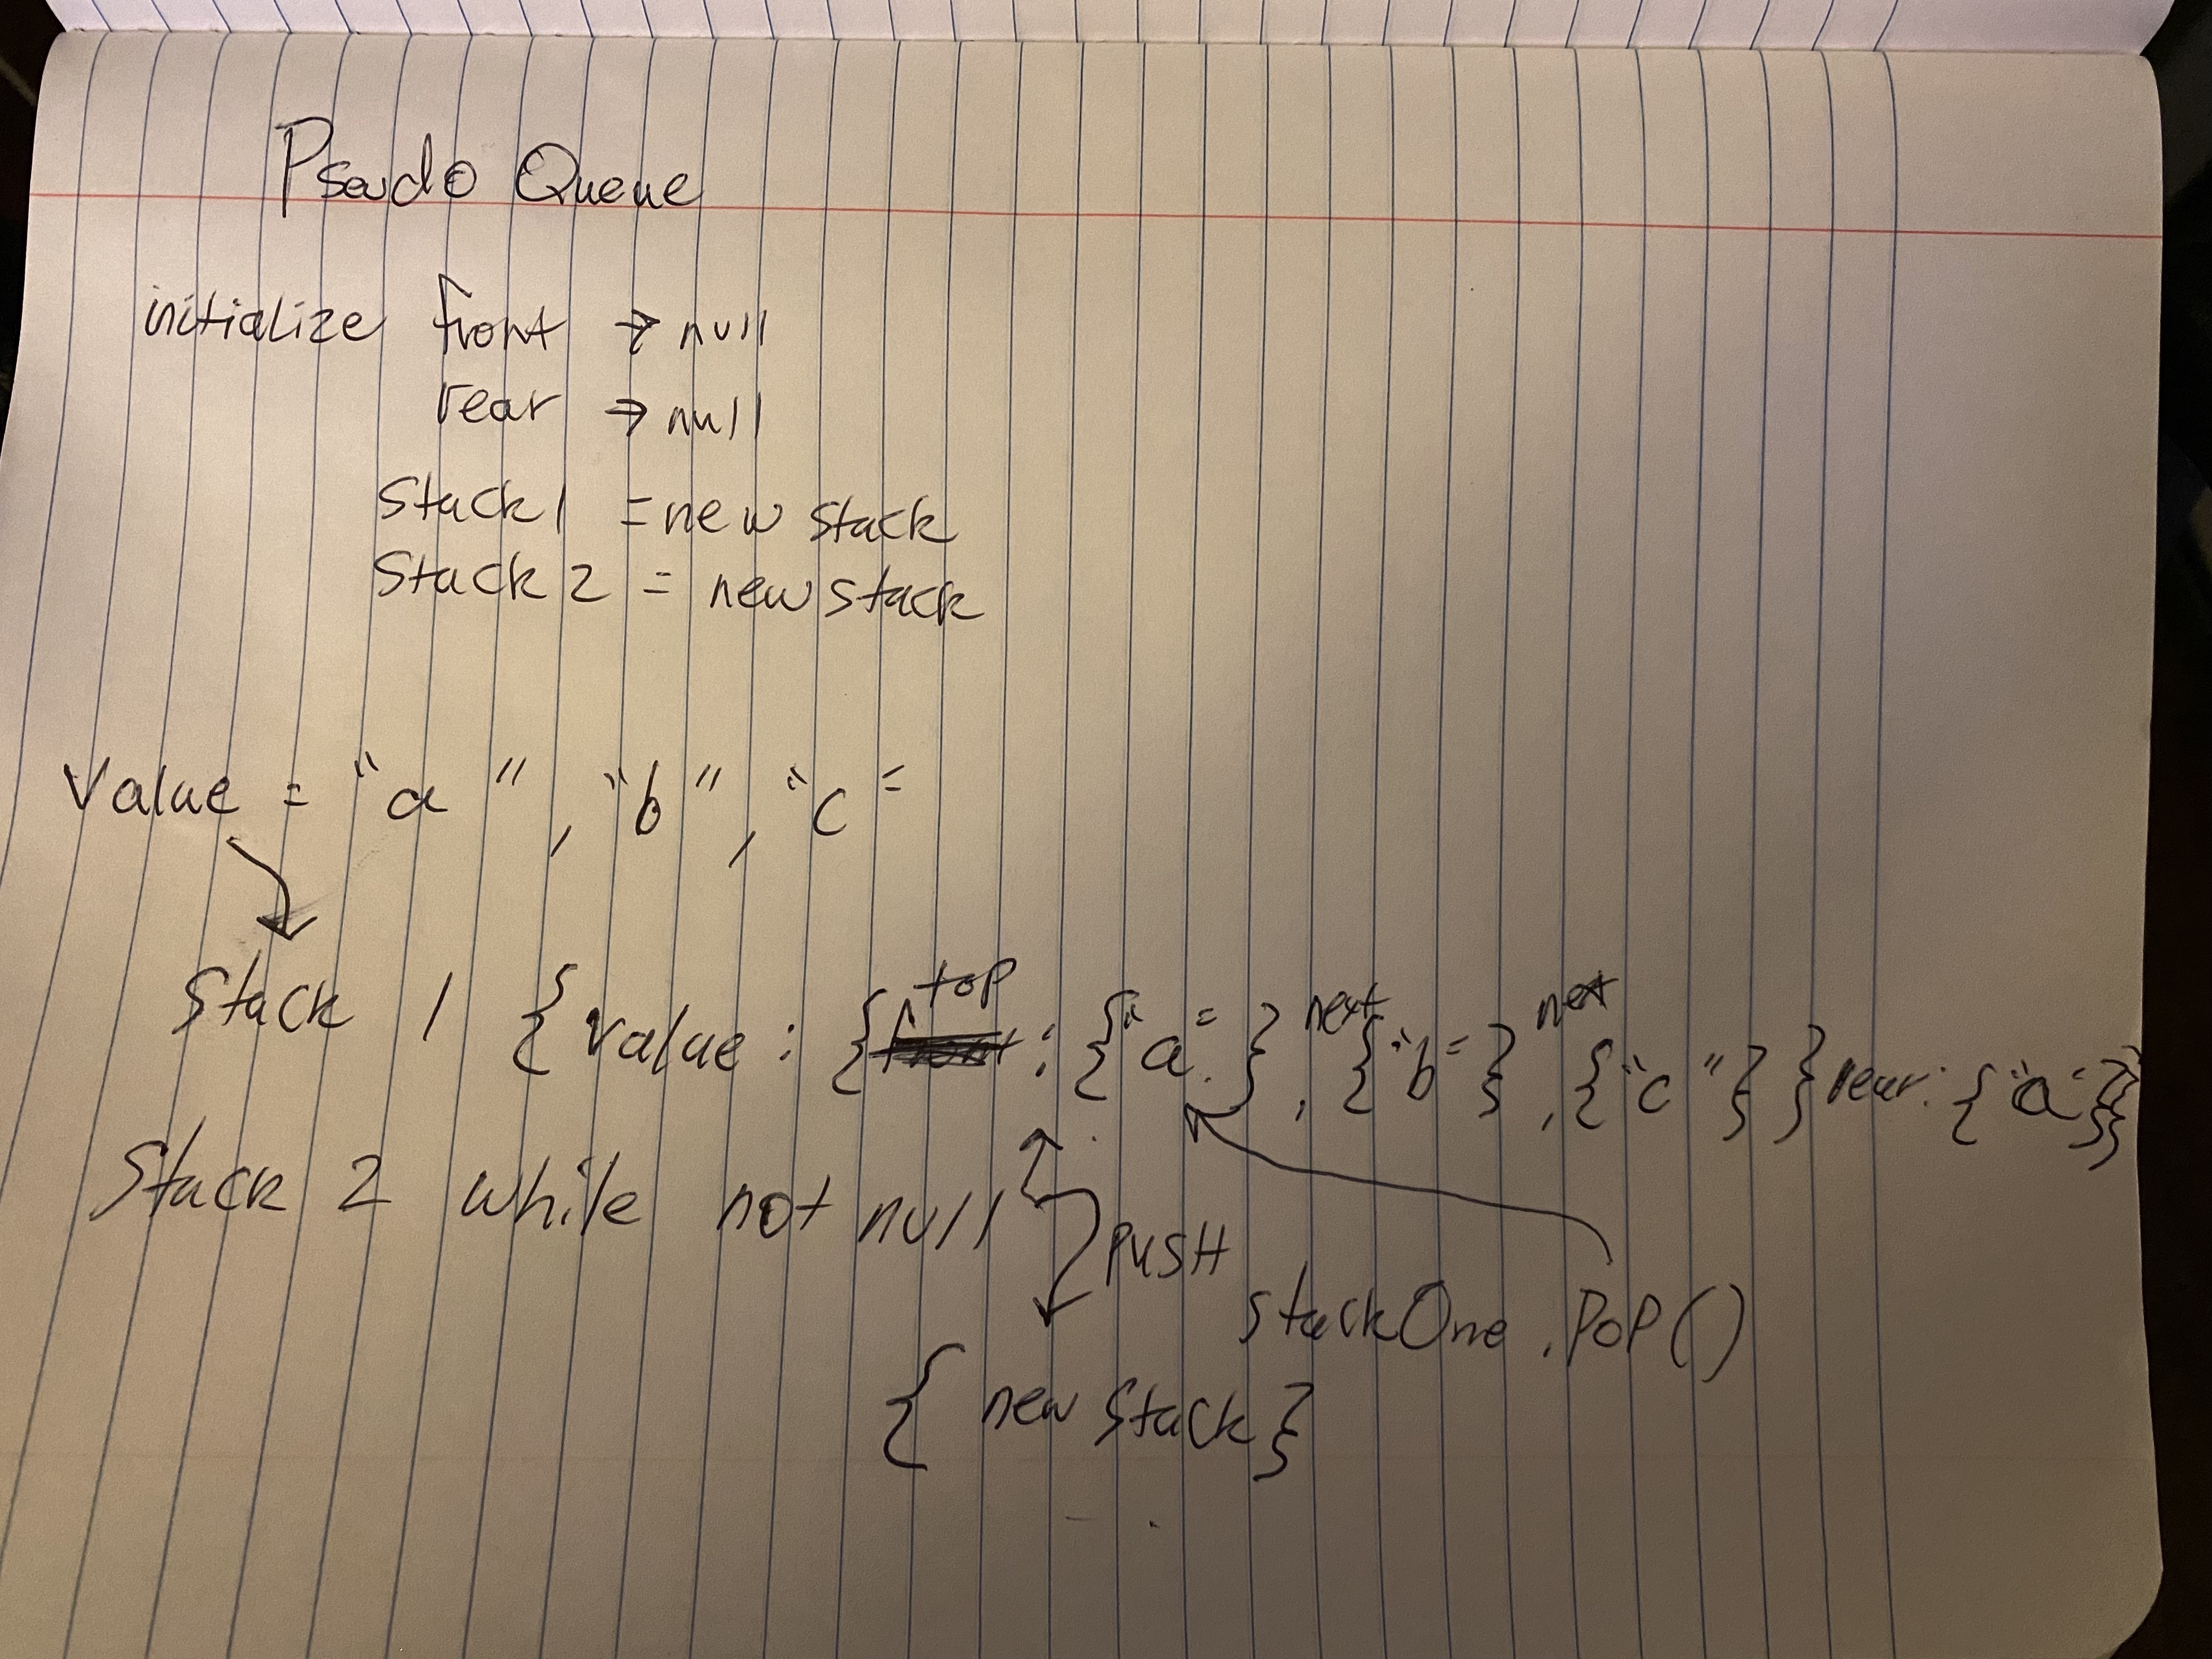 Pseudo Queue
initialize front → null
rear → null
Stack1 = new stack
Stack 2 = new stack
Value = "a", "b", "c"
top
next
next
Stack 1 { value : { : { "a" }, { "b" }, { "c" } } rear: { "a" }}
Stack 2 while not null
PUSH
stackOne.POP()
{ new Stack }